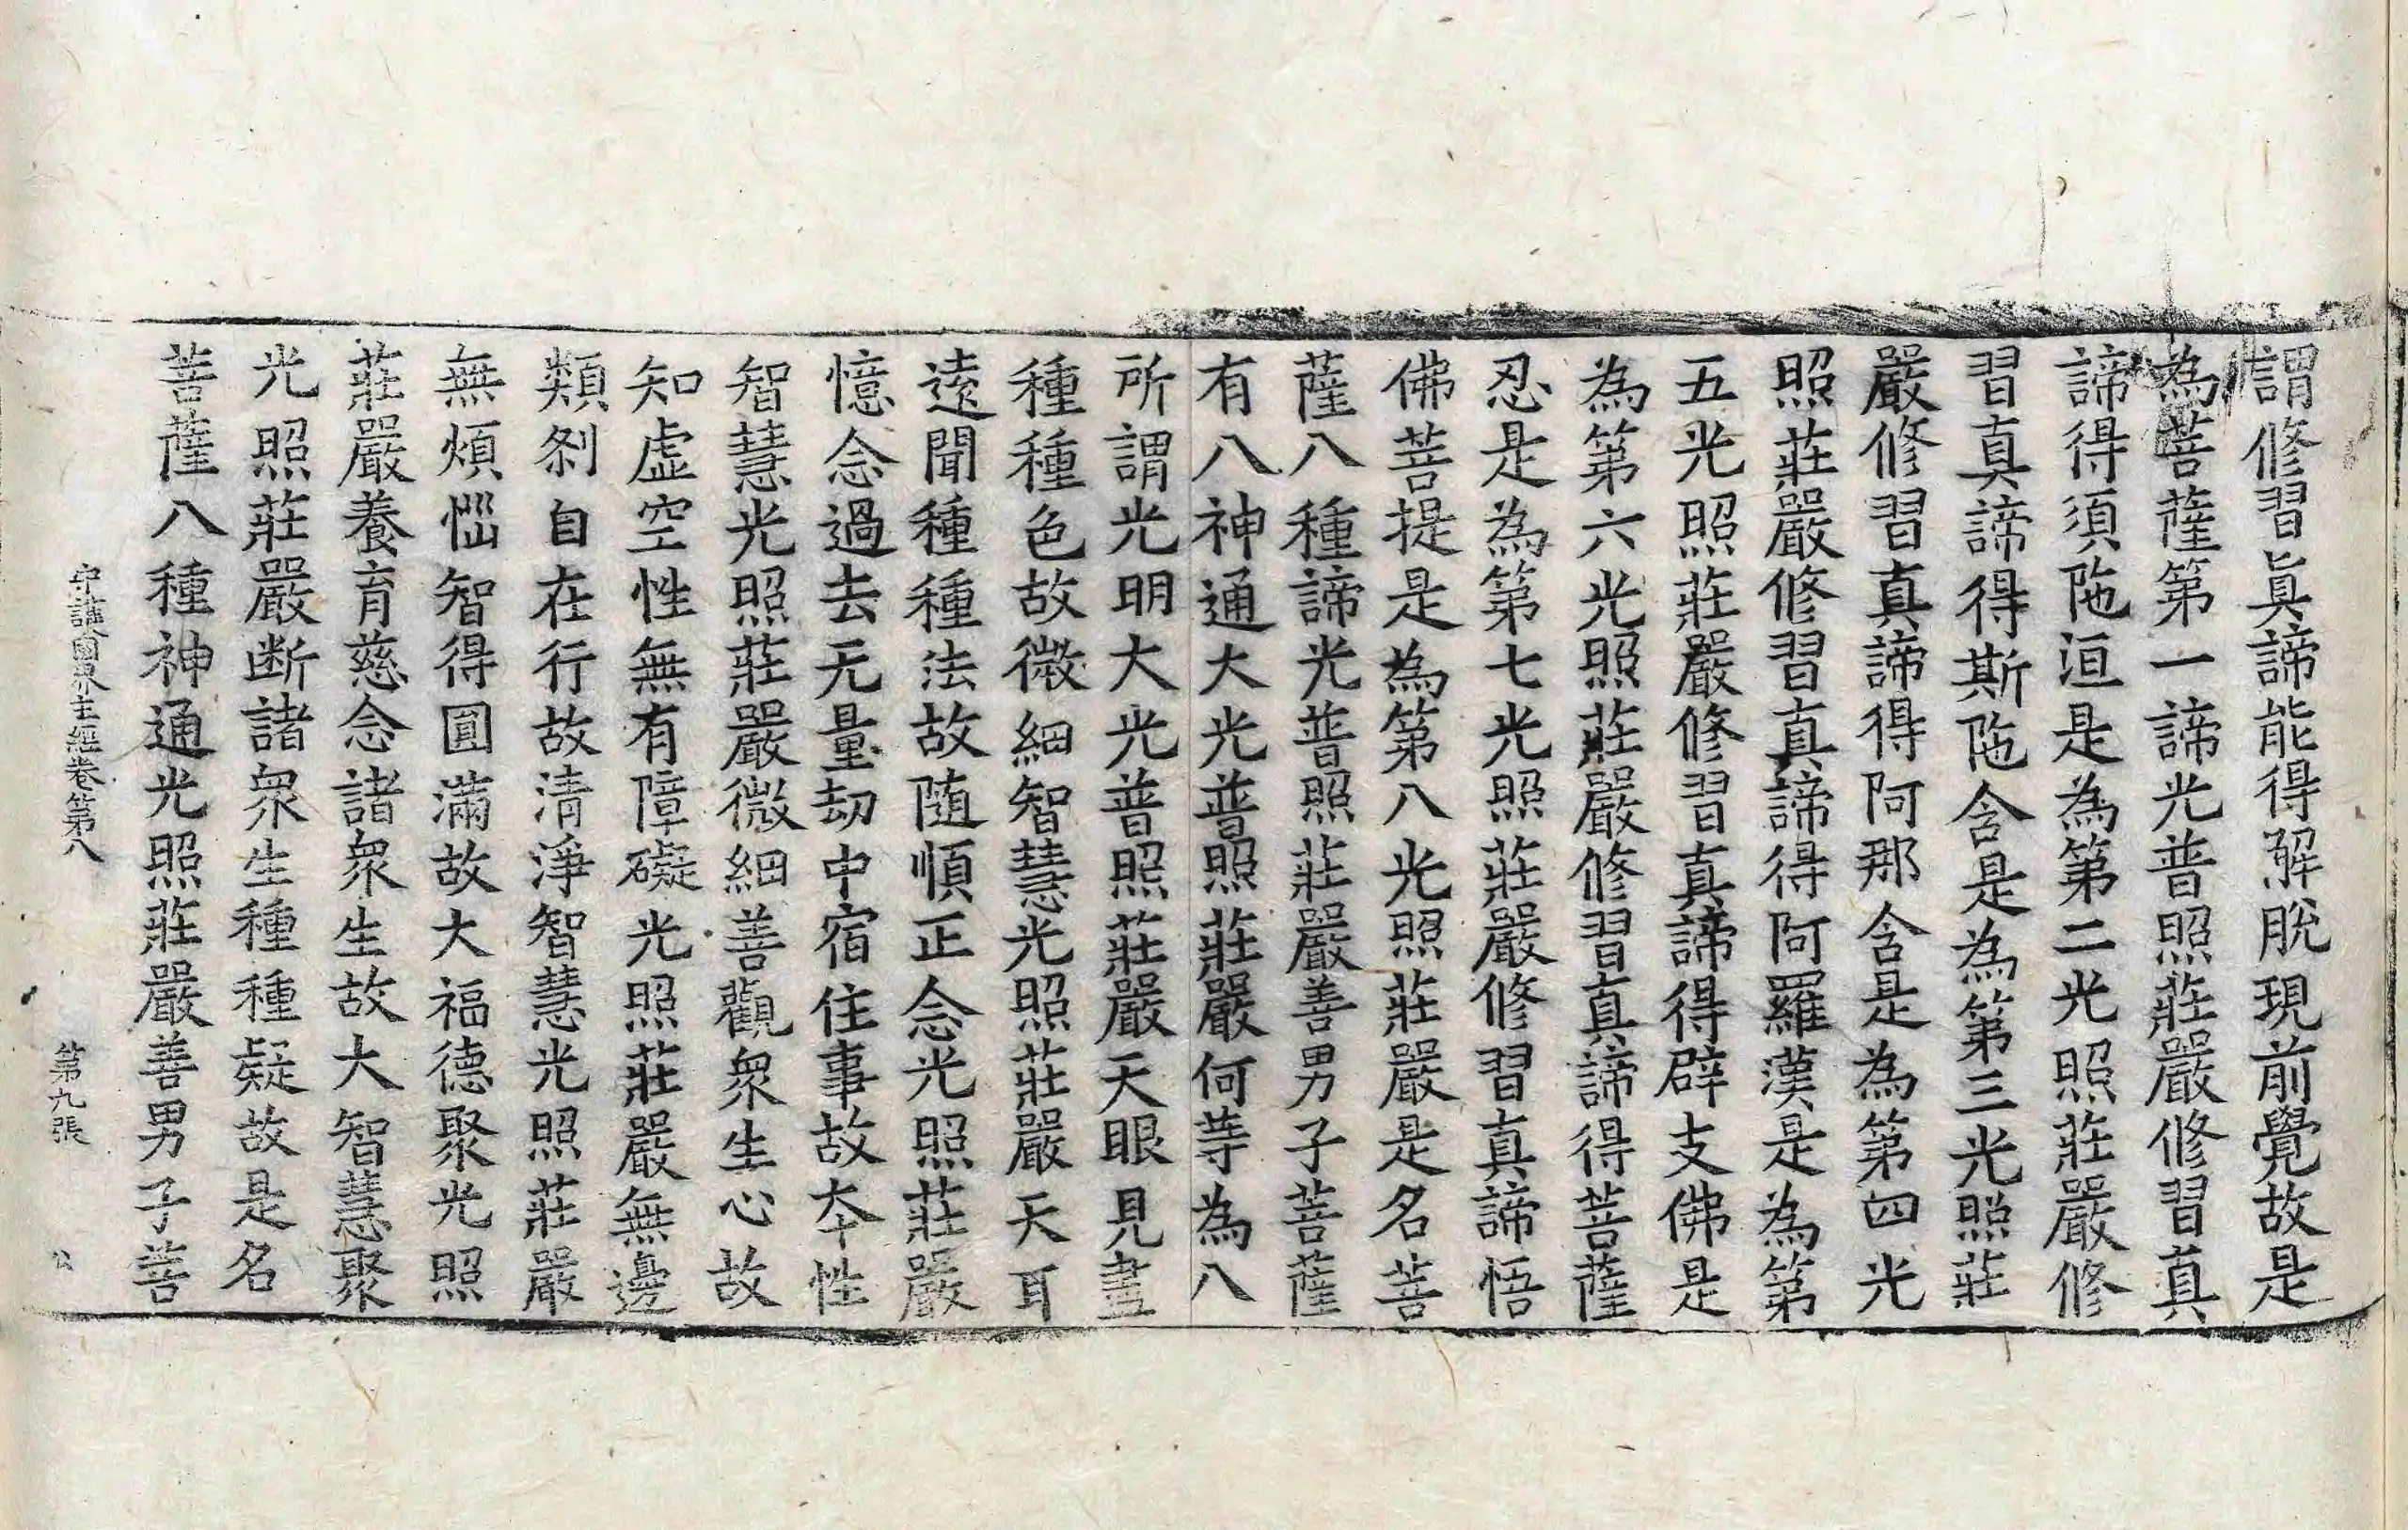 謂修習真諦能得解脫現前覺故是
為菩薩第一諦光普照莊嚴修習真
諦得須陁洹是為第二光照莊嚴修
習真諦得斯陁含是為第三光照莊
嚴修習真諦得阿那含是為第四光
照莊嚴修習真諦得阿羅漢是為第
五光照莊嚴修習真諦得辟支佛是
為第六光照莊嚴修習真諦得菩薩
忍是為第七光照莊嚴修習真諦悟
佛菩提是為第八光照莊嚴是名菩
薩八種諦光普照莊嚴善男子菩薩
有八神通大光普照莊嚴何等為八
所謂光明大光普照莊嚴天眼見晝
種種色故微細智慧光照莊嚴天耳
遠聞種種法故随順正念光照莊嚴
憶念過去无量劫中宿住事故夲性
智慧光照莊嚴微細善觀衆生心故
知虛空性無有障礙光照莊嚴無邊
類剎自在行故清淨智慧光照莊嚴
無煩惱智得圓滿故大福德聚光照
莊嚴養育慈念諸衆生故大智慧聚
光照莊嚴断諸衆生種種疑故是名
菩薩八種神通光照莊嚴善男子菩
守護國界主經卷第八 第九張 公